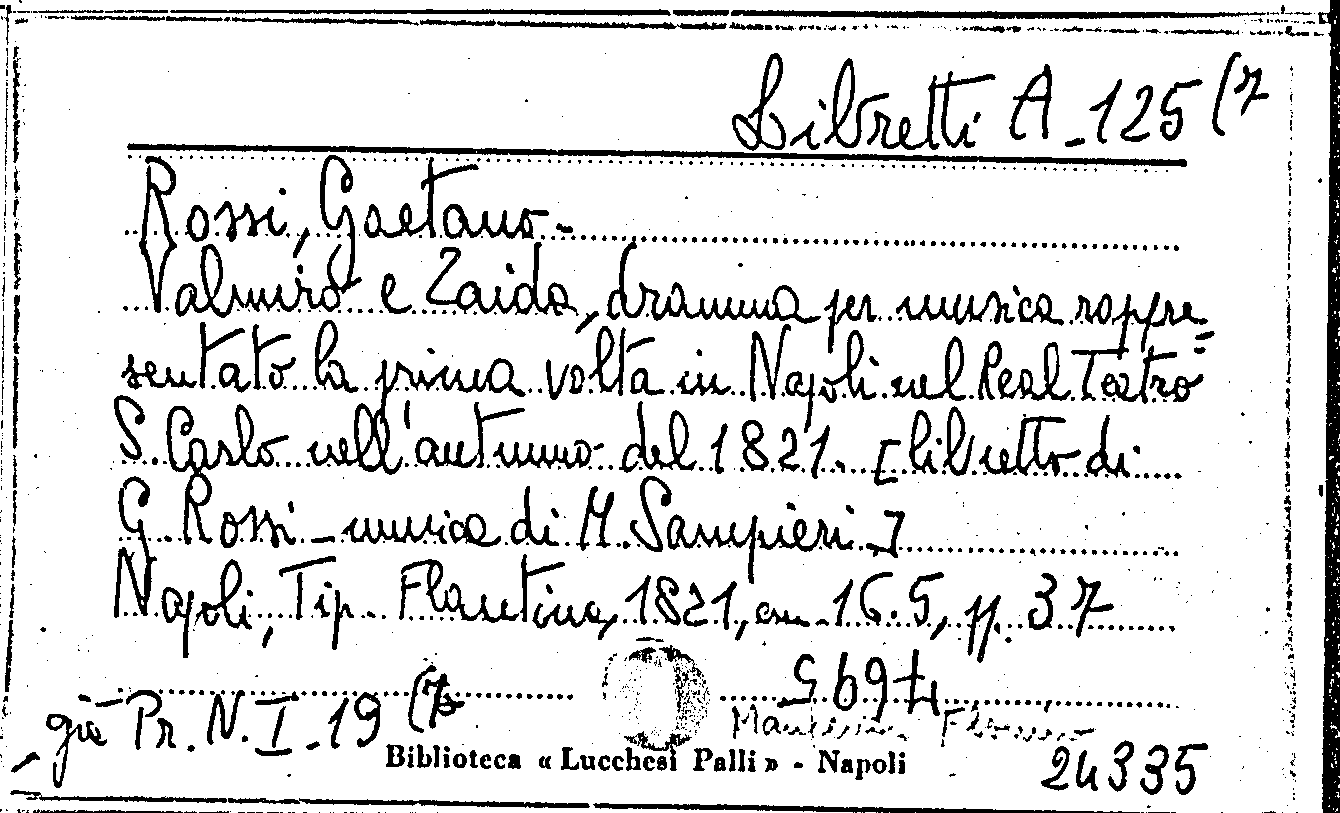 Libretti A-125 (7
Rossi, Gaetano-
Valmiro e Zaida, dramma per musica rappre=
sentato la prima volta in Napoli nel Real Teatro
S. Carlo nell'autunno del 1821. [libretto di
G. Rossi - musica di M. Sampieri.]
Napoli, Tip. Flautina, 1821, cm. 16.5, pp. 37
già Pr. N. I. 19 (7
Biblioteca « Lucchesi Palli » - Napoli
24335